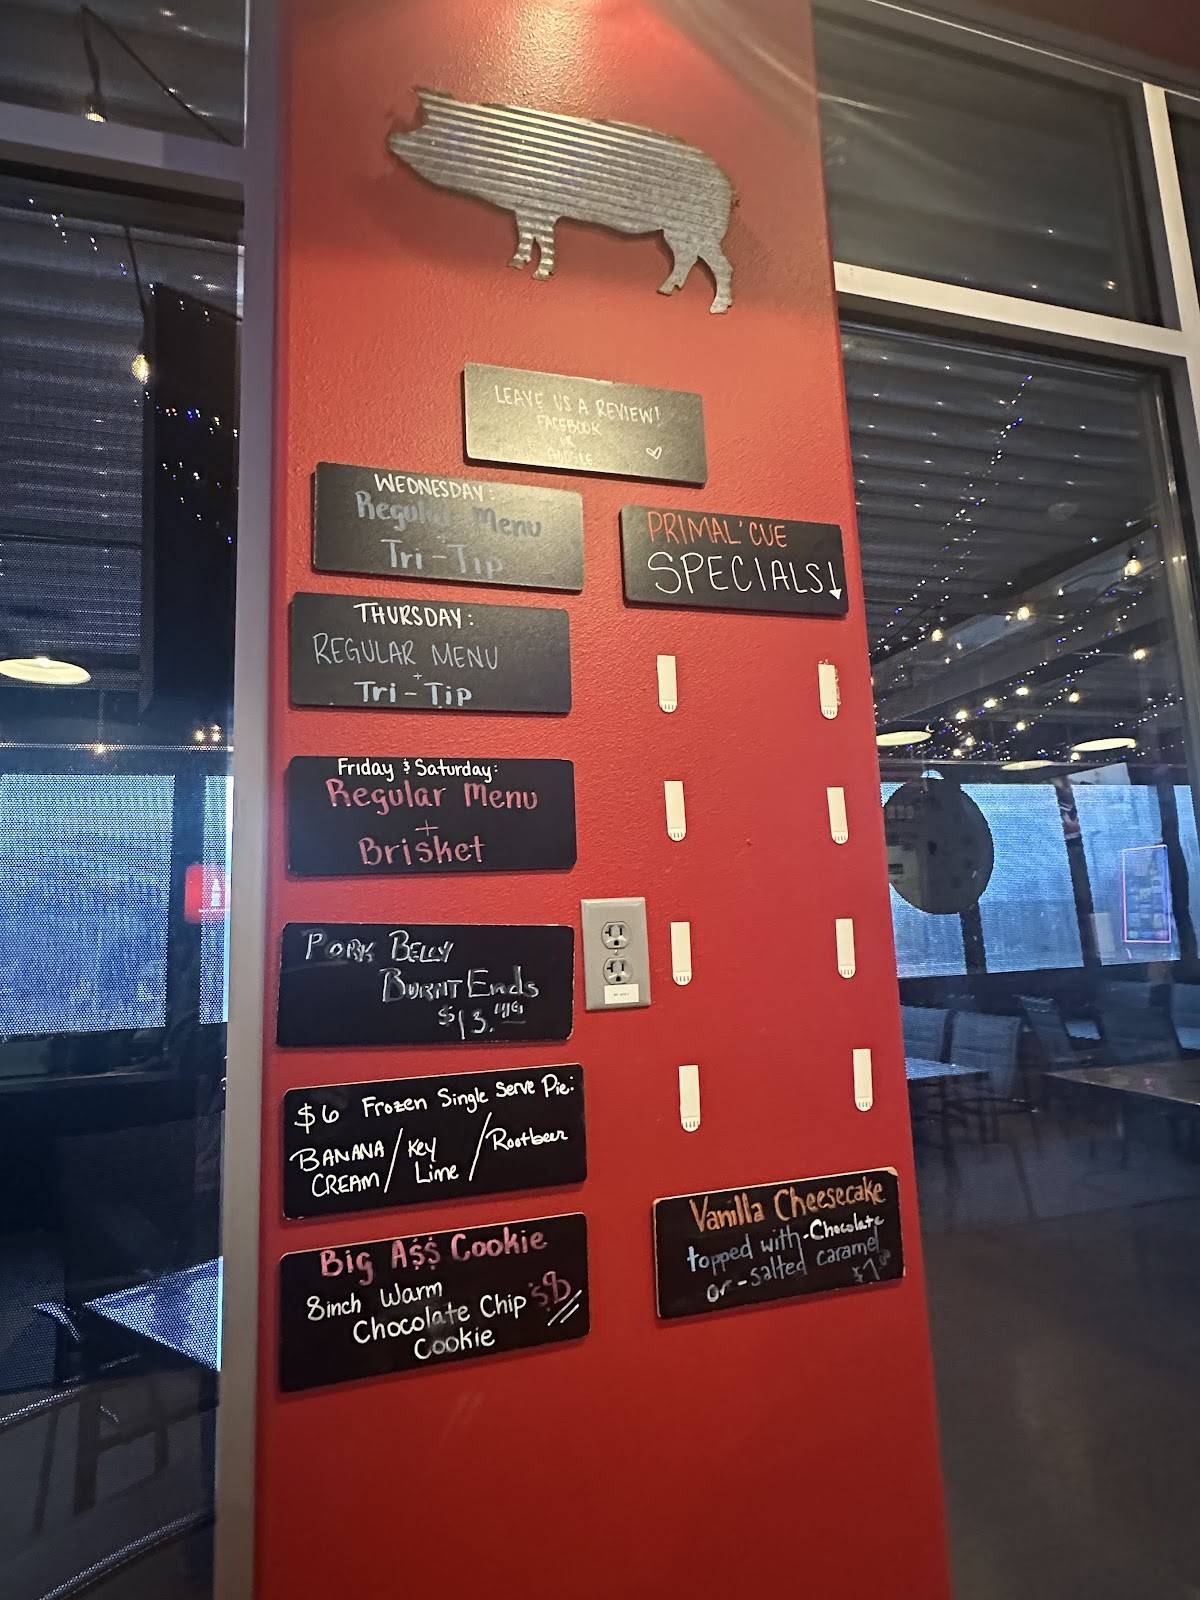 LEAVE US A REVIEW!
FACEBOOK
OR
GOOGLE
WEDNESDAY:
Regular Menu
Tri-Tip
PRIMAL 'CUE
SPECIALS↓
THURSDAY:
REGULAR MENU
+
Tri-Tip
Friday & Saturday:
Regular Menu
+
Brisket
PORK BELLY
BURNT Ends
$13.
$6 Frozen Single Serve Pie:
BANANA / Key / Rootbeer
CREAM / Lime
Big A$$ Cookie
8inch Warm
Chocolate Chip $8
Cookie
Vanilla Cheesecake
topped with - Chocolate
or - salted caramel